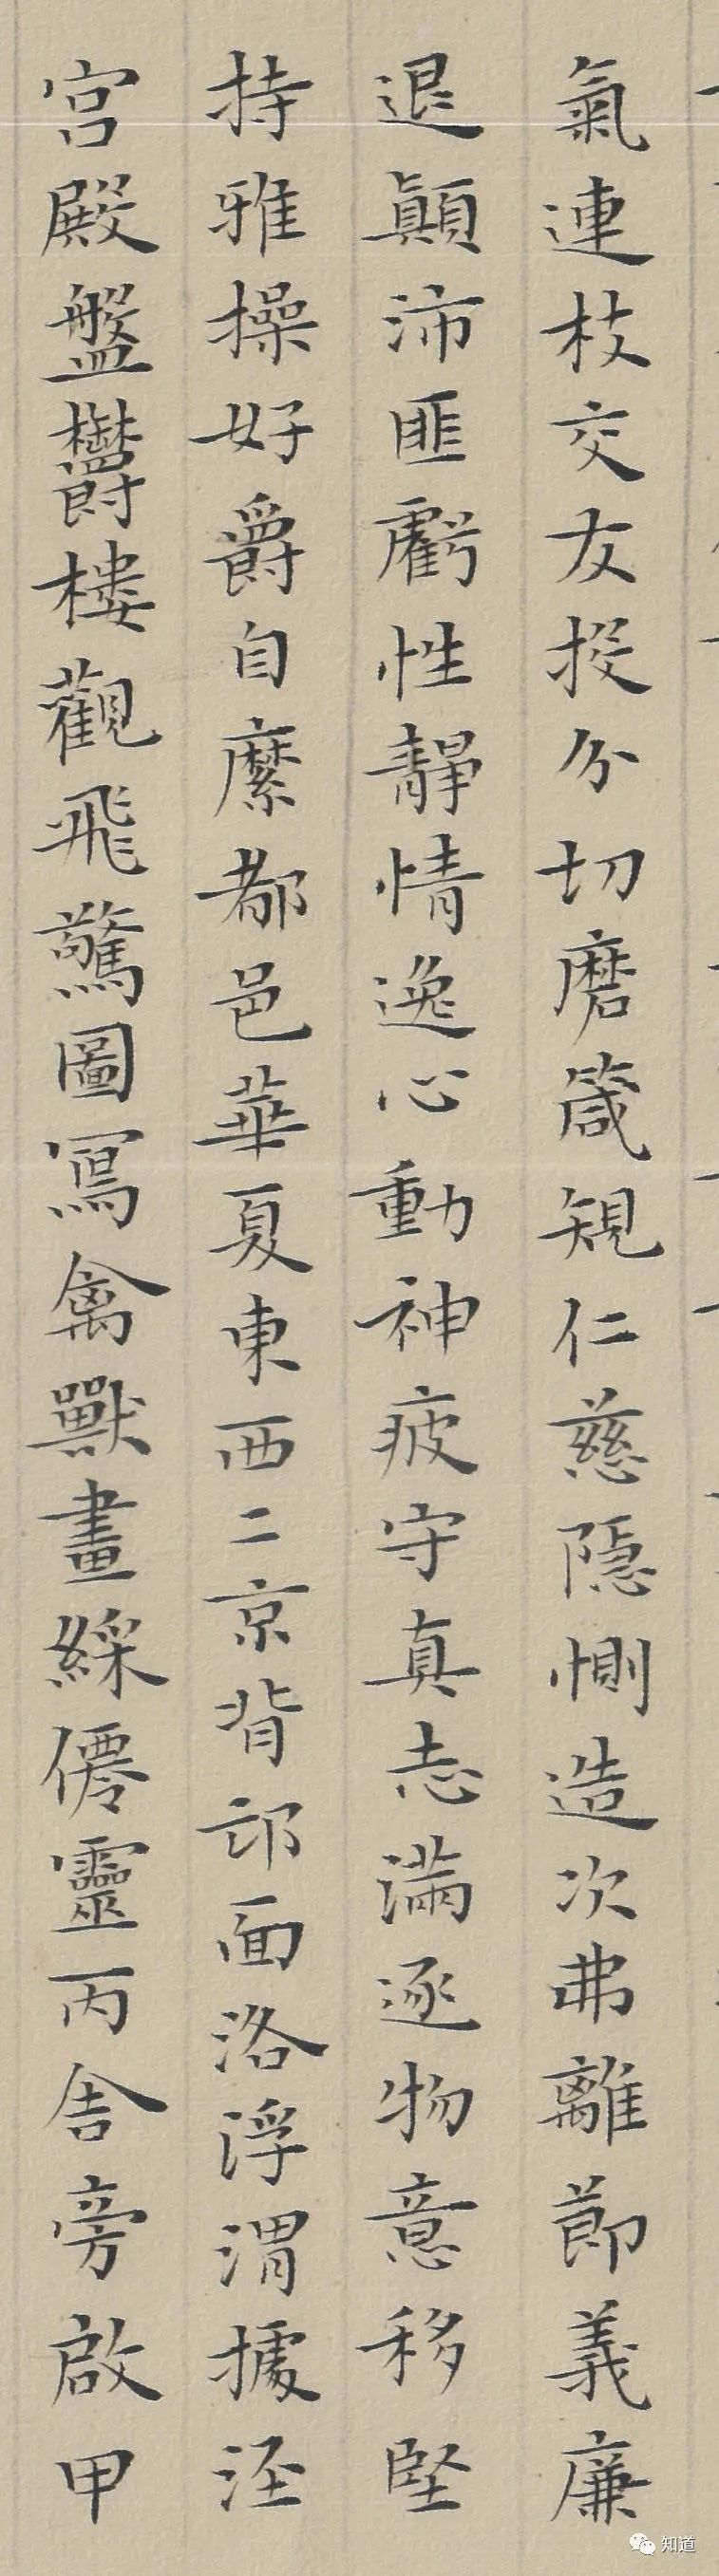 氣連枝交友投分切磨箴規仁慈隱惻造次弗離節義廉
退顛沛匪虧性靜情逸心動神疲守真志滿逐物意移堅
持雅操好爵自縻都邑華夏東西二京背邙面洛浮渭據涇
宮殿盤鬱樓觀飛驚圖寫禽獸畫綵僊靈丙舍旁啟甲
知道